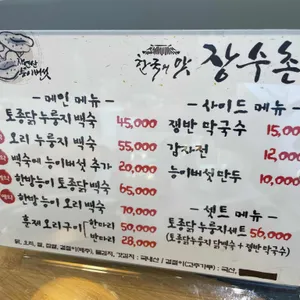 자연산 능이버섯
한국의 맛 장수촌
- 메인 메뉴 -
토종닭 누룽지 백숙 45,000
오리 누룽지 백숙 55,000
백숙에 능이버섯 추가 20,000
한방능이 토종닭 백숙 65,000
한방 능이 오리 백숙 70,000
훈제 오리구이 한마리 50,000
반마리 28,000
- 사이드 메뉴 -
쟁반 막국수 15,000
감자전 12,000
능이버섯 만두 10,000
- 셋트 메뉴 -
토종닭 누룽지세트 56,000
(토종닭누룽지 닭백숙 + 쟁반 막국수)
닭, 오리, 쌀, 찹쌀, 겉절이(배추), 열갈치, 갓김치 : 국내산 / 겉절이(고추가루) : 국산,